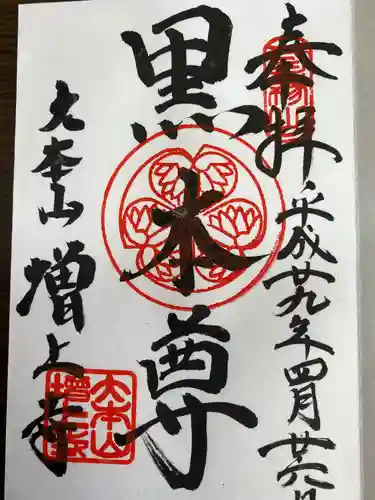 奉拝
平成廿九年四月廿六日
黒本尊
大本山 増上寺
大本山
増上寺